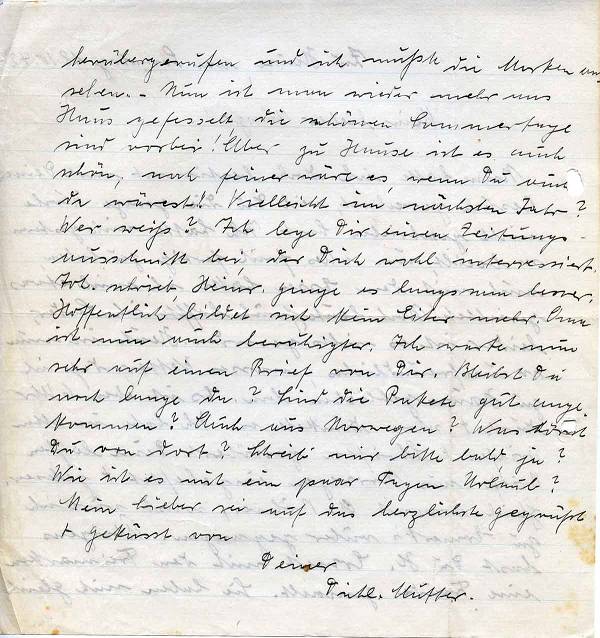 herübergerufen und ich mußte die Marken an-
sehen. - Nun ist man wieder mehr ans
Haus gefesselt, die schönen Sommertage
sind vorbei! Aber zu Hause ist es auch
schön, noch feiner wäre es, wenn Du auch
da wärest! Vielleicht im nächsten Jahr?
Wer weiß? Ich lege Dir einen Zeitungs-
ausschnitt bei, der Dich wohl interressiert.
Joh. schrieb, Heinr. ginge es langsam besser.
Hoffentlich bildet sich kein Eiter mehr. Oma
ist nun auch beruhigter. Ich warte nun
sehr auf einen Brief von Dir. Bleibst Du
noch lange da? Sind die Pakete gut ange-
kommen? Auch aus Norwegen? Was hörst
Du von dort? Schreib mir bitte bald, ja?
Wie ist es mit ein paar Tagen Urlaub?
Mein Lieber sei auf das herzlichste gegrüßt
+ geküsst von
Deiner
Mutter.